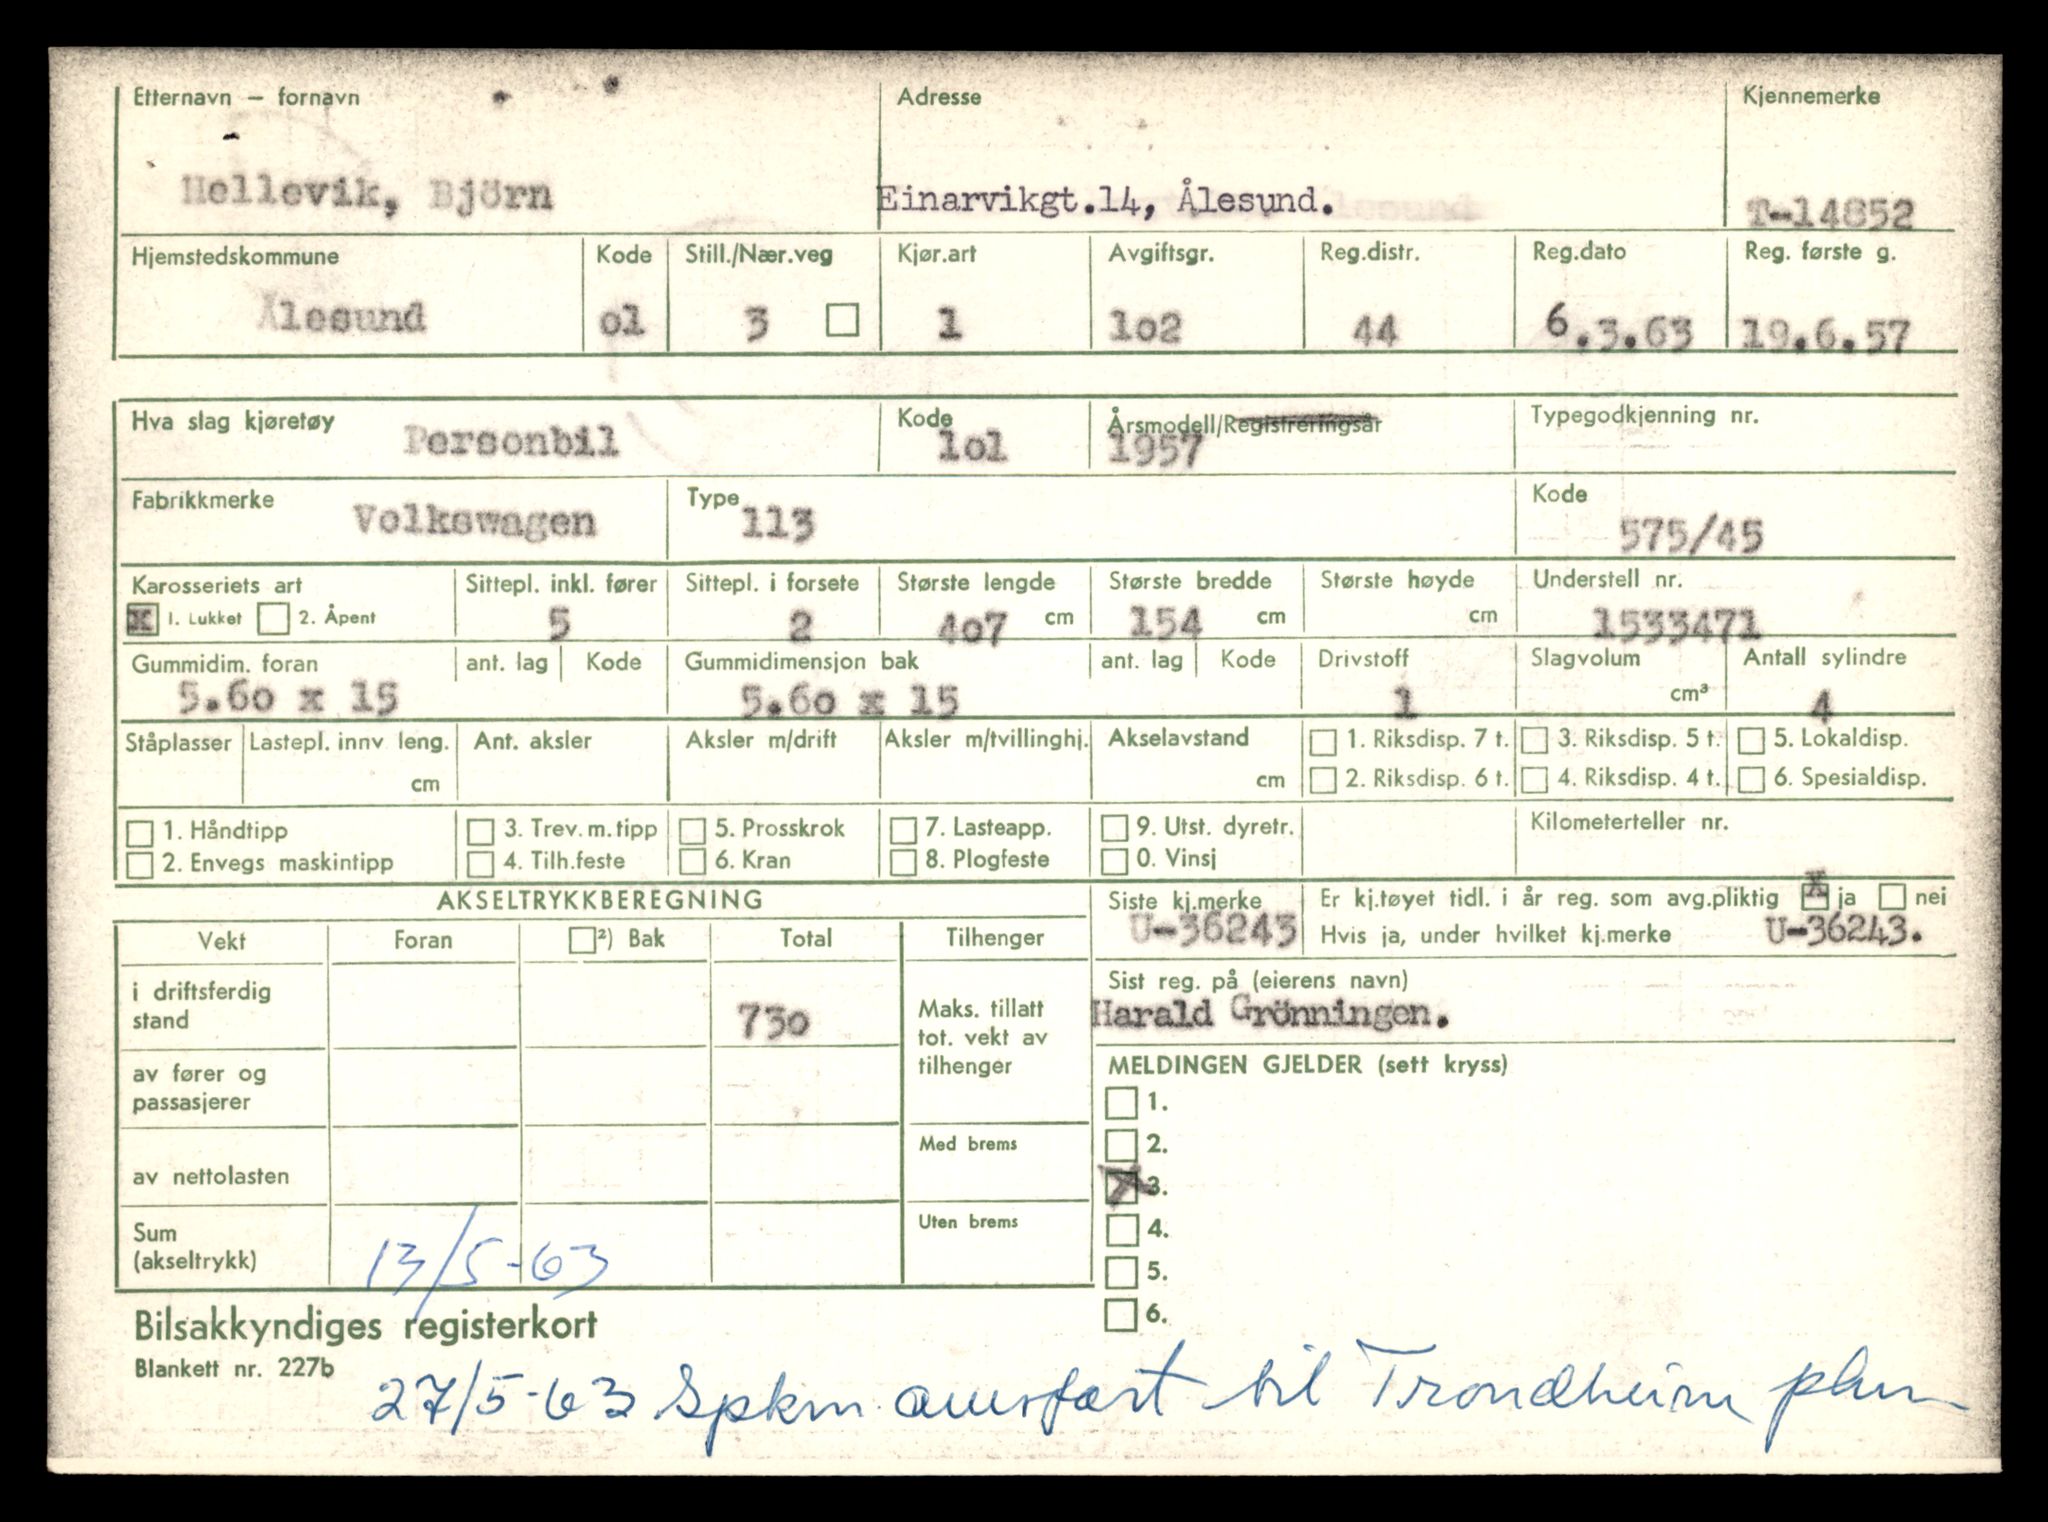 Etternavn – fornavn Adresse Kjennemerke
Hellevik, Björn Einarvikgt.14, Ålesund. T-14852
Hjemstedskommune Kode Still./Nær.veg Kjør.art Avgiftsgr. Reg.distr. Reg.dato Reg. første g.
Ålesund ol 3 1 lo2 44 6.3.63 19.6.57
Hva slag kjøretøy Personbil Kode lol Årsmodell/Registreringsår 1957 Typegodkjenning nr.
Fabrikkmerke Volkswagen Type 113 Kode 575/45
Karosseriets art Sittepl. inkl. fører Sittepl. i forsete Største lengde Største bredde Største høyde Understell nr.
x 1. Lukket 2. Åpent 5 2 4o7 cm 154 cm cm 1533471
Gummidim. foran ant. lag Kode Gummidimensjon bak ant. lag Kode Drivstoff Slagvolum Antall sylindre
5.6o x 15 5.6o x 15 1 cm³ 4
Ståplasser Lastepl. innv leng. Ant. aksler Aksler m/drift Aksler m/tvillinghj. Akselavstand 1. Riksdisp. 7 t. 3. Riksdisp. 5 t. 5. Lokaldisp.
cm cm 2. Riksdisp. 6 t. 4. Riksdisp. 4 t. 6. Spesialdisp.
1. Håndtipp 3. Trev. m. tipp 5. Prosskrok 7. Lasteapp. 9. Utst. dyretr. Kilometerteller nr.
2. Envegs maskintipp 4. Tilh.feste 6. Kran 8. Plogfeste 0. Vinsj
AKSELTRYKKBEREGNING Siste kj.merke Er kj.tøyet tidl. i år reg. som avg.pliktig x ja nei
U-36243 Hvis ja, under hvilket kj.merke U-36243.
Vekt Foran ²) Bak Total Tilhenger
Sist reg. på (eierens navn)
Harald Grönningen.
i driftsferdig stand 73o Maks. tillatt tot. vekt av tilhenger
MELDINGEN GJELDER (sett kryss)
av fører og passasjerer
1.
2.
Med brems
av nettolasten
x 3.
4.
Uten brems
Sum (akseltrykk) 13/5-63
5.
6.
Bilsakkyndiges registerkort
Blankett nr. 227b
27/5-63 Spkm. til Trondheim